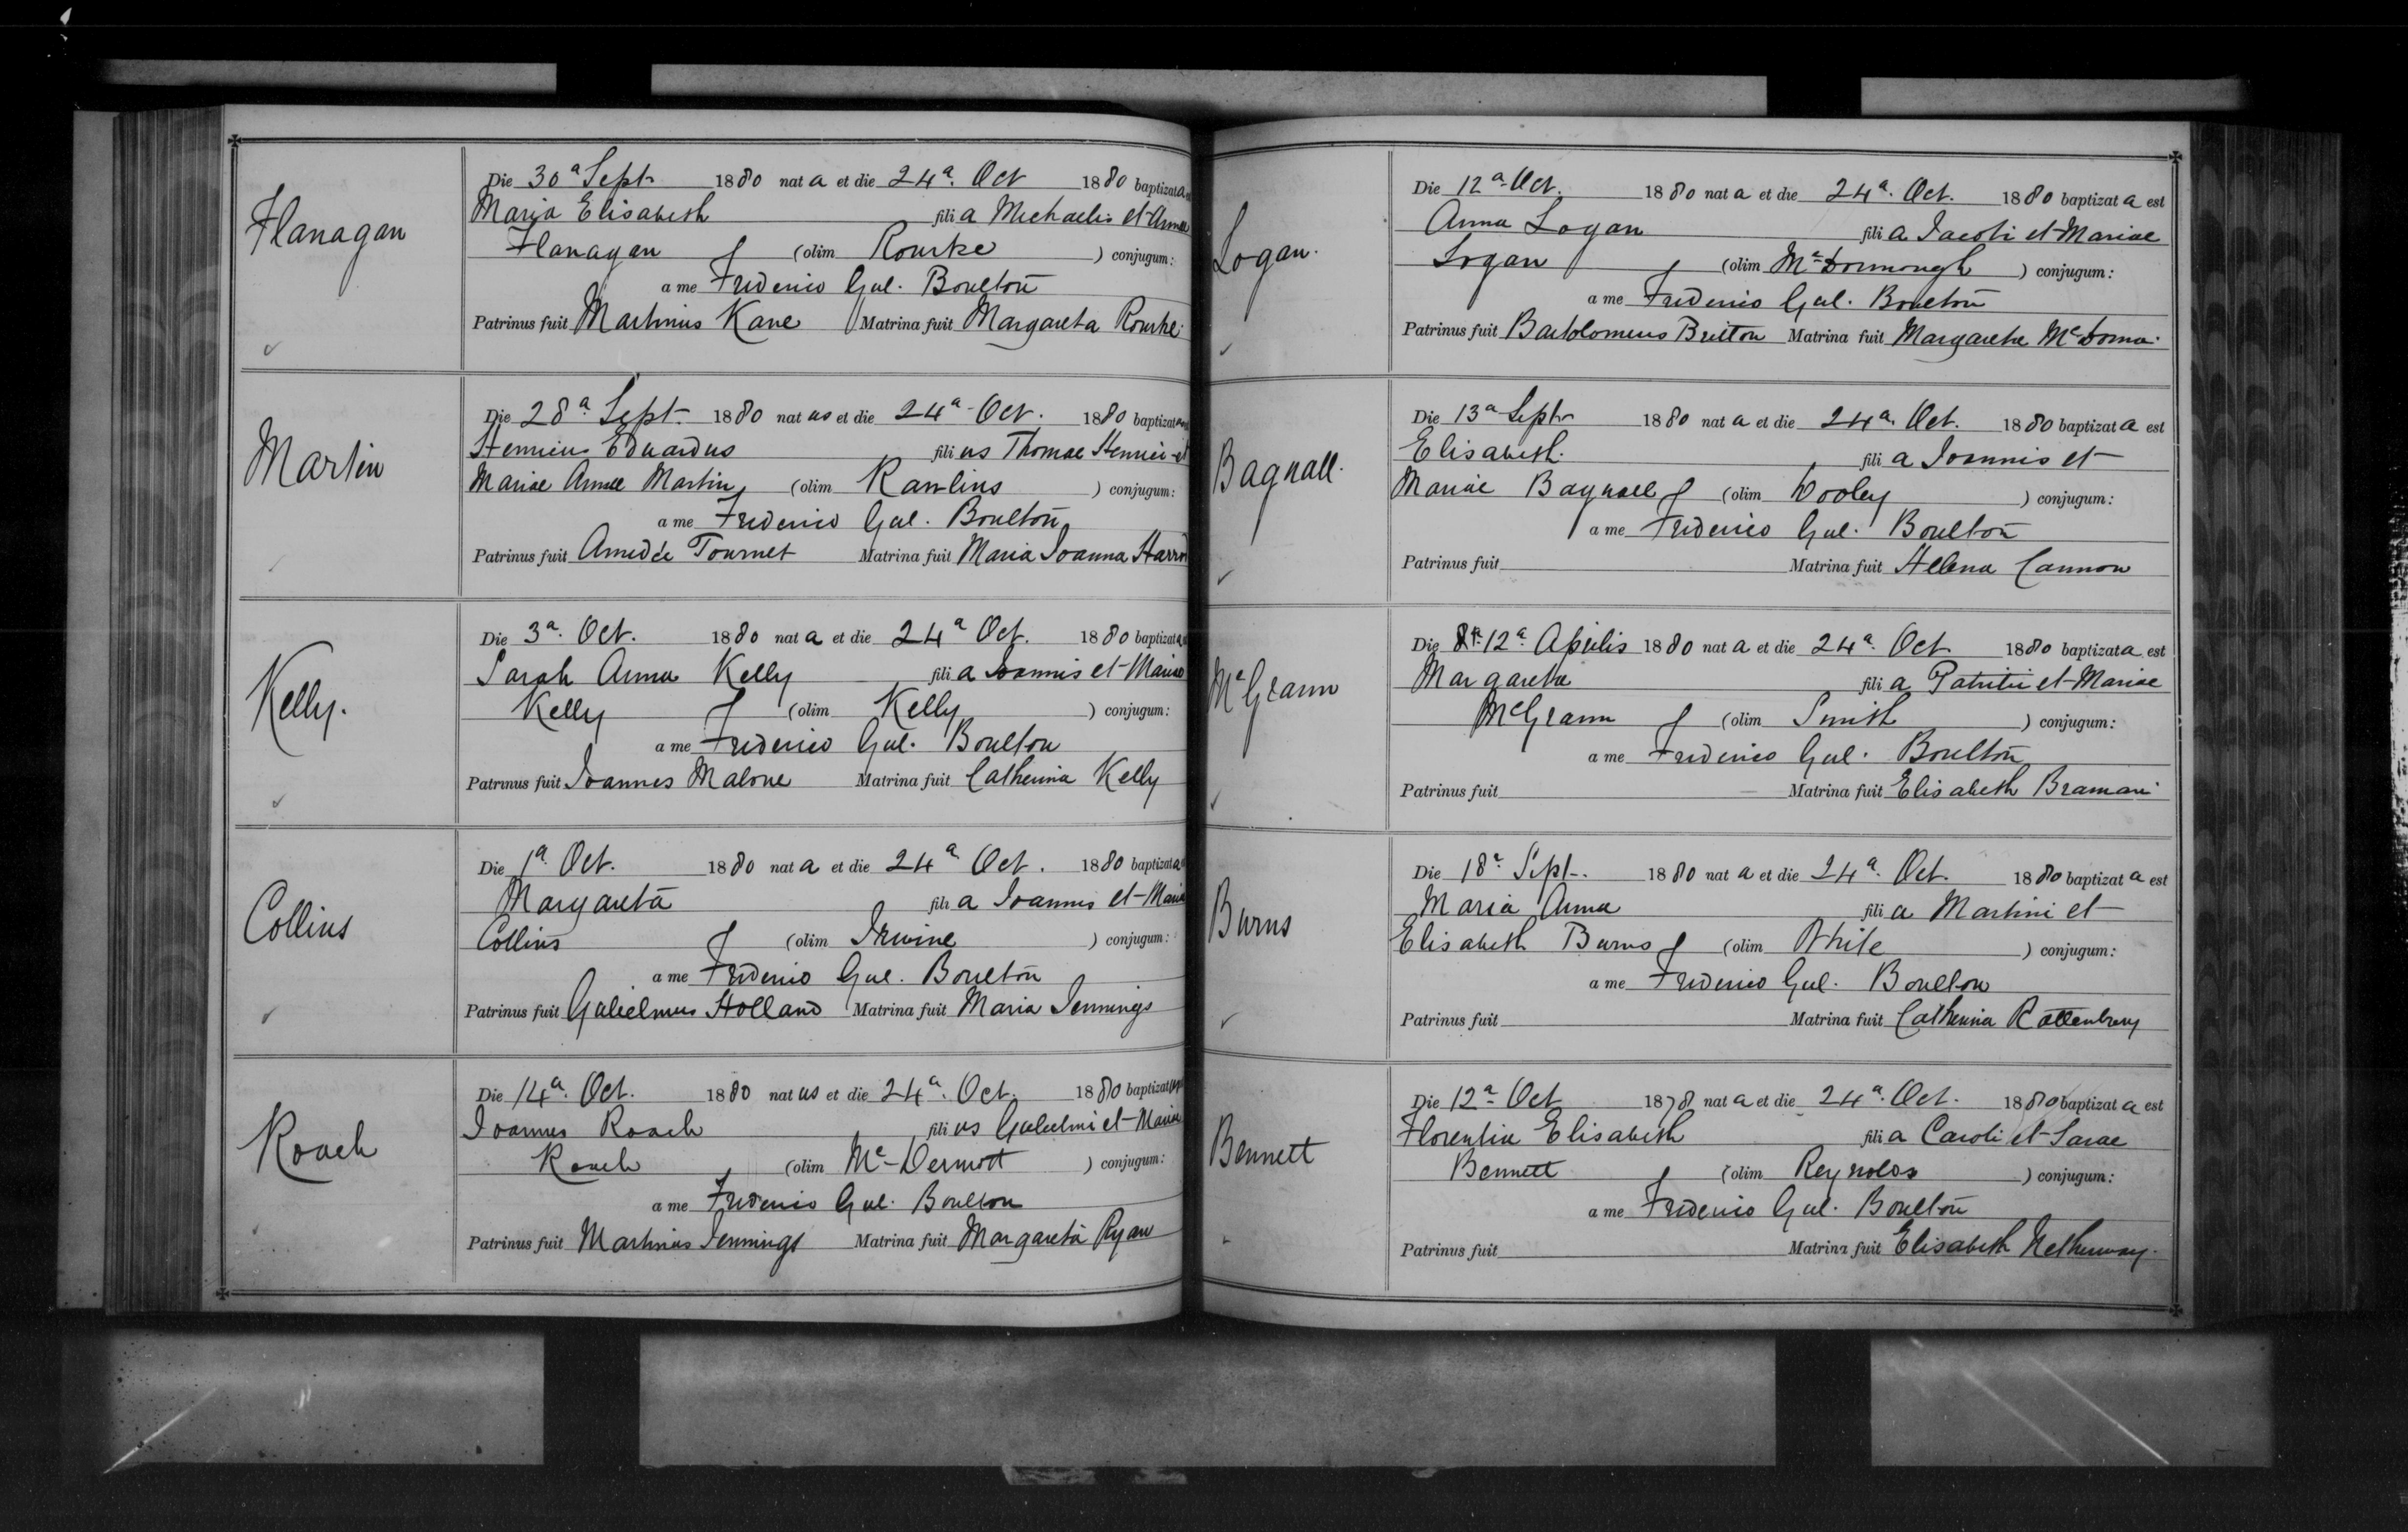 Flanagan
Die 30a Sept 1880 nata et die 24a. Oct 1880 baptizata
Maria Elisabeth filia Michaelis et Annae
Flanagan (olim Rourke ) conjugum:
a me Frederico Gul. Boulton
Patrinus fuit Martinus Kane Matrina fuit Margareta Rourke
Martin
Die 28a Sept. 1880 natus et die 24a Oct. 1880 baptizatus
Henricus Eduardus filius Thomae Henrici et
Mariae Annae Martin (olim Rawlins ) conjugum:
a me Frederico Gul. Boulton
Patrinus fuit Amedée Tournet Matrina fuit Maria Joanna
Kelly.
Die 3a. Oct. 1880 nata et die 24a Oct. 1880 baptizata
Sarah Anna Kelly filia Joannis et Mariae
Kelly (olim Kelly ) conjugum:
a me Frederico Gul. Boulton
Patrinus fuit Joannes Malone Matrina fuit Catherina Kelly
Collins
Die 1a. Oct. 1880 nata et die 24a Oct. 1880 baptizata
Margareta filia Joannis et Mariae
Collins (olim Irwine ) conjugum:
a me Frederico Gul. Boulton
Patrinus fuit Gulielmus Holland Matrina fuit Maria Jennings
Roach
Die 14a. Oct. 1880 natus et die 24a. Oct. 1880 baptizatus
Joannes Roach filius Gulielmi et Mariae
Roach (olim Mc-Dermott ) conjugum:
a me Frederico Gul. Boulton
Patrinus fuit Martinus Jennings Matrina fuit Margareta Ryan
Logan.
Die 12a Oct. 1880 nata et die 24a. Oct. 1880 baptizata est
Anna Logan filia Jacobi et Mariae
Logan (olim McDonnough ) conjugum:
a me Frederico Gul. Boulton
Patrinus fuit Bartolomeus Britton Matrina fuit Margareta McDonna
Bagnall.
Die 13a Sept 1880 nata et die 24a. Oct. 1880 baptizata est
Elisabeth. filia Joannis et
Mariae Bagnall (olim Dooley ) conjugum:
a me Frederico Gul. Boulton
Patrinus fuit Matrina fuit Helena Cannon
McGrann
Die 12a. Aprilis 1880 nata et die 24a. Oct 1880 baptizata est
Margareta filia Patritii et Mariae
McGrann (olim Smith ) conjugum:
a me Frederico Gul. Boulton
Patrinus fuit Matrina fuit Elisabeth Braman
Burns
Die 18a. Sept. 1880 nata et die 24a. Oct. 1880 baptizata est
Maria Anna filia Martini et
Elisabeth Burns (olim White ) conjugum:
a me Frederico Gul. Boulton
Patrinus fuit Matrina fuit Catherina Rattenbury
Bennett
Die 12a Oct 1878 nata et die 24a. Oct. 1880 baptizata est
Florentia Elisabeth filia Caroli et Sarae
Bennett (olim Reynolds ) conjugum:
a me Frederico Gul. Boulton
Patrinus fuit Matrina fuit Elisabeth Netherway.